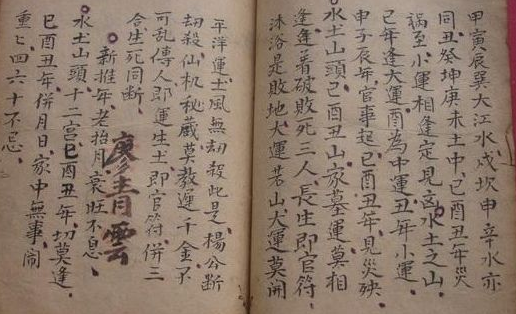 甲寅辰巽大江水戌坎申辛水亦
同丑癸坤庚未土中己酉丑年災
禍至小運相逢定見凶水土之山
己年逢大運酉為中運丑年小運
申子辰年官事起己酉丑年見災殃
水土山頭己酉丑山家墓運莫相
逢逢着破敗死三人長生即官符
沐浴是敗地大運若山大運莫開
平洋運土風無刼殺此是楊公斷
刼殺仙机秘藏莫教遲千金不
可乱傳人即運生土即官符併三
合生死同断
新推年老掐月衰旺不息
水土山頭十二宮巳酉丑年切莫逢
巳酉丑年併月日家中無事鬧
重匕四六十不忌
廖青雲